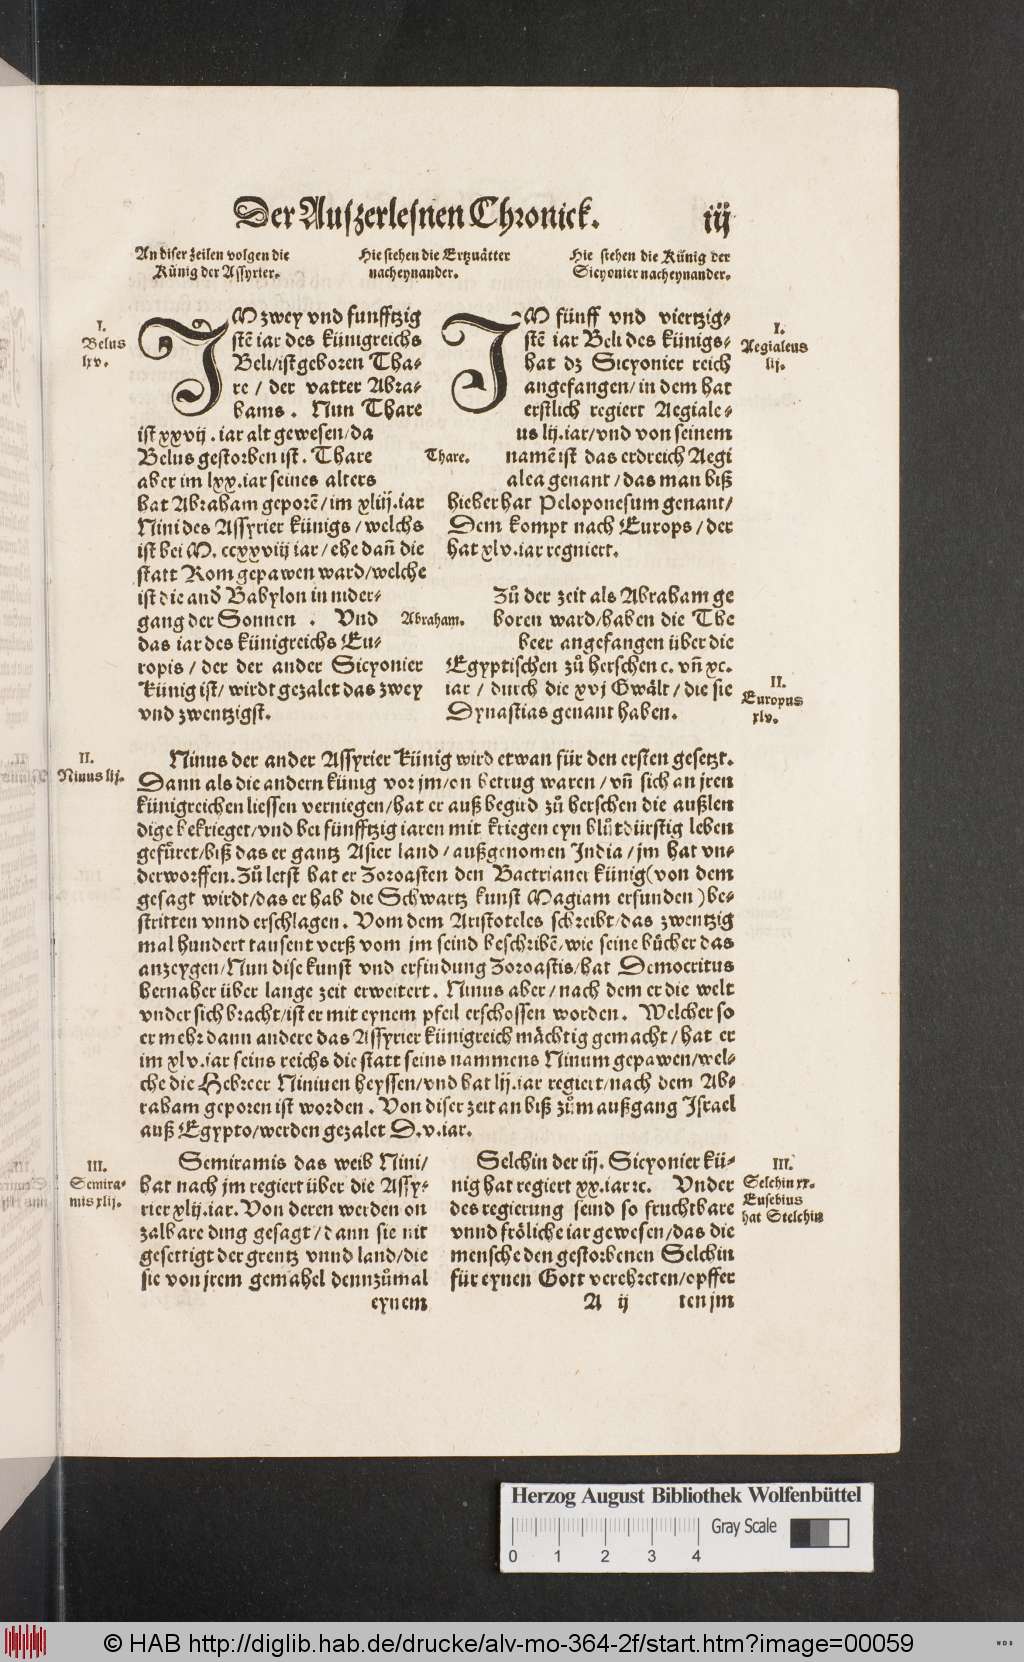 Der Auszerlesnen Chronick. iij
An diser zeilen volgen die
Künig der Assyrier.
Hie stehen die Ertzuätter
nacheynander.
Hie stehen die Künig der
Sicyonier nacheynander.
I.
Belus
lxv.
IM zwey vnd funfftzig
stē iar des künigreichs
Beli/ist geboren Tha-
re / der vatter Abra-
hams . Nun Thare
ist xxvij . iar alt gewesen/da
Belus gestorben ist . Thare
aber im lxx.iar seines alters
hat Abraham geporē/im xliij.iar
Nini des Assyrier künigs / welchs
ist bei M. ccxxviij iar / ehe dañ die
statt Rom gepawen ward/welche
ist die and̕ Babylon in nider-
gang der Sonnen . Vnd
das iar des künigreichs Eu-
ropis / der der ander Sicyonier
künig ist/ wirdt gezalet das zwey
vnd zwentzigst.
Thare.
Abraham.
IM fünff vnd viertzig-
stē iar Beli des künigs-
hat dz Sicyonier reich
angefangen/ in dem hat
erstlich regiert Aegiale-
us lij.iar/vnd von seinem
namē ist das erdreich Aegi
alea genant / das man biß
hieher hat Peloponesum genant/
Dem kompt nach Europs / der
hat xlv.iar regniert.
Zů der zeit als Abraham ge
boren ward/haben die The
beer angefangen über die
Egyptischen zů herschen c. vñ xc.
iar / durch die xvj Gwält / die sie
Dynastias genant haben.
I.
Aegialeus
lij.
II.
Europus
xlv.
II.
Ninus lij.
Ninus der ander Assyrier künig wird etwan für den ersten gesetzt.
Dann als die andern künig vor jm/on betrug waren / vñ sich an jren
künigreichen liessen verniegen/hat er auß begird zů herschen die außlen
dige bekrieget/vnd bei fünfftzig iaren mit kriegen eyn blůtdürstig leben
gefůret/biß das er gantz Asier land / außgenomen India / jm hat vn-
derworffen. Zů letst hat er Zoroasten den Bactrianer künig(von dem
gesagt wirdt/das er hab die Schwartz kunst Magiam erfunden ) be-
stritten vnnd erschlagen . Vom dem Aristoteles schreibt/das zwentzig
mal hundert tausent verß vom jm seind beschribē/wie seine bůcher das
anzeygen/Nun dise kunst vnd erfindung Zoroastis/hat Democritus
hernaher über lange zeit erweitert . Ninus aber / nach dem er die welt
vnder sich bracht/ist er mit eynem pfeil erschossen worden . Welcher so
er mehr dann andere das Assyrier künigreich mächtig gemacht / hat er
im xlv.iar seins reichs die statt seins nammens Ninum gepawen/wel-
che die Hebreer Niniuen heyssen/vnd hat lij.iar regiert/nach dem Ab-
raham geporen ist worden . Von diser zeit an biß zům außgang Israel
auß Egypto/werden gezalet D.v.iar.
III.
Semira-
mis xlij.
Semiramis das weib Nini/
hat nach jm regiert über die Assy-
rier xlij.iar. Von deren werden on
zalbare ding gesagt / dann sie nit
gesettigt der grentz vnnd land/die
sie von jrem gemahel dennzůmal
eynem
Selchin der iij. Sicyonier kü-
nig hat regiert xx.iar ꝛc. Vnder
des regierung seind so fruchtbare
vnnd fröliche iar gewesen/das die
mensche den gestorbenen Selchin
für eynen Gott verehreten/opffer
A ij ten jm
III.
Selchin xx.
Eusebius
hat Stelchin
Herzog August Bibliothek Wolfenbüttel
Gray Scale
0 1 2 3 4
© HAB http://diglib.hab.de/drucke/alv-mo-364-2f/start.htm?image=00059